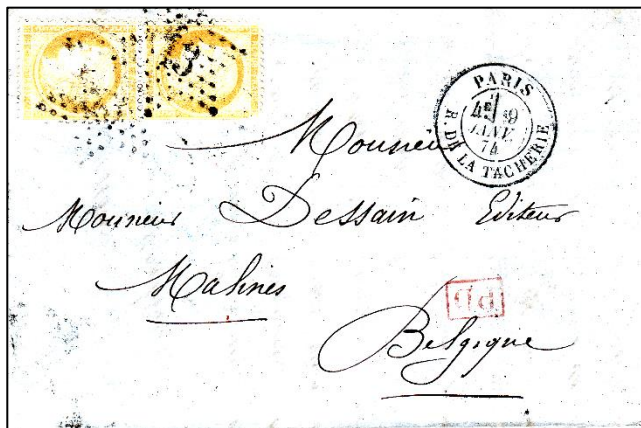 PARIS
4E 9
JANV
74
R. DE LA TACHERIE
Monsieur
Monsieur Dessain Editeur
Malines
PD
Belgique